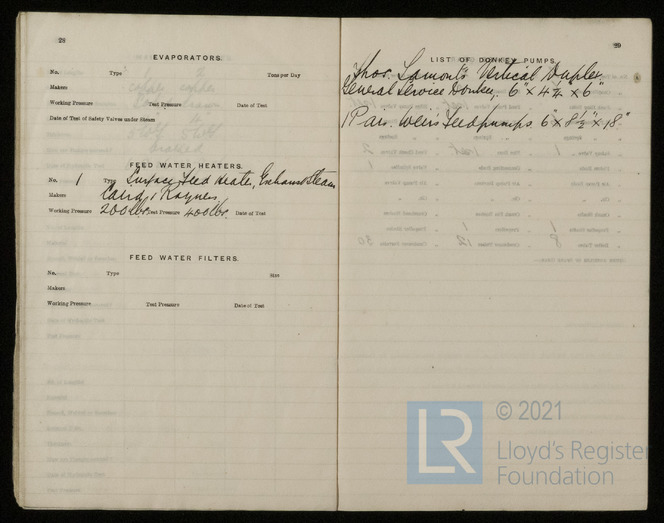 28
EVAPORATORS.
No. Type Tons per Day
Makers
Working Pressure Test Pressure Date of Test
Date of Test of Safety Valves under Steam
FEED WATER HEATERS.
No. 1 Type Surface Feed Heater, Exhaust Steam
Makers Caird & Rayner,
Working Pressure 200 lbs. Test Pressure 400 lbs. Date of Test
FEED WATER FILTERS.
No. Type Size
Makers
Working Pressure Test Pressure Date of Test
29
LIST OF DONKEY PUMPS.
Thos. Lamont's Vertical Duplex
General Service Donkey, 6" × 4½ × 6"
1 Pair Weir's Feed pumps 6" × 8½" × 18"
© 2021
LR
Lloyd's Register
Foundation